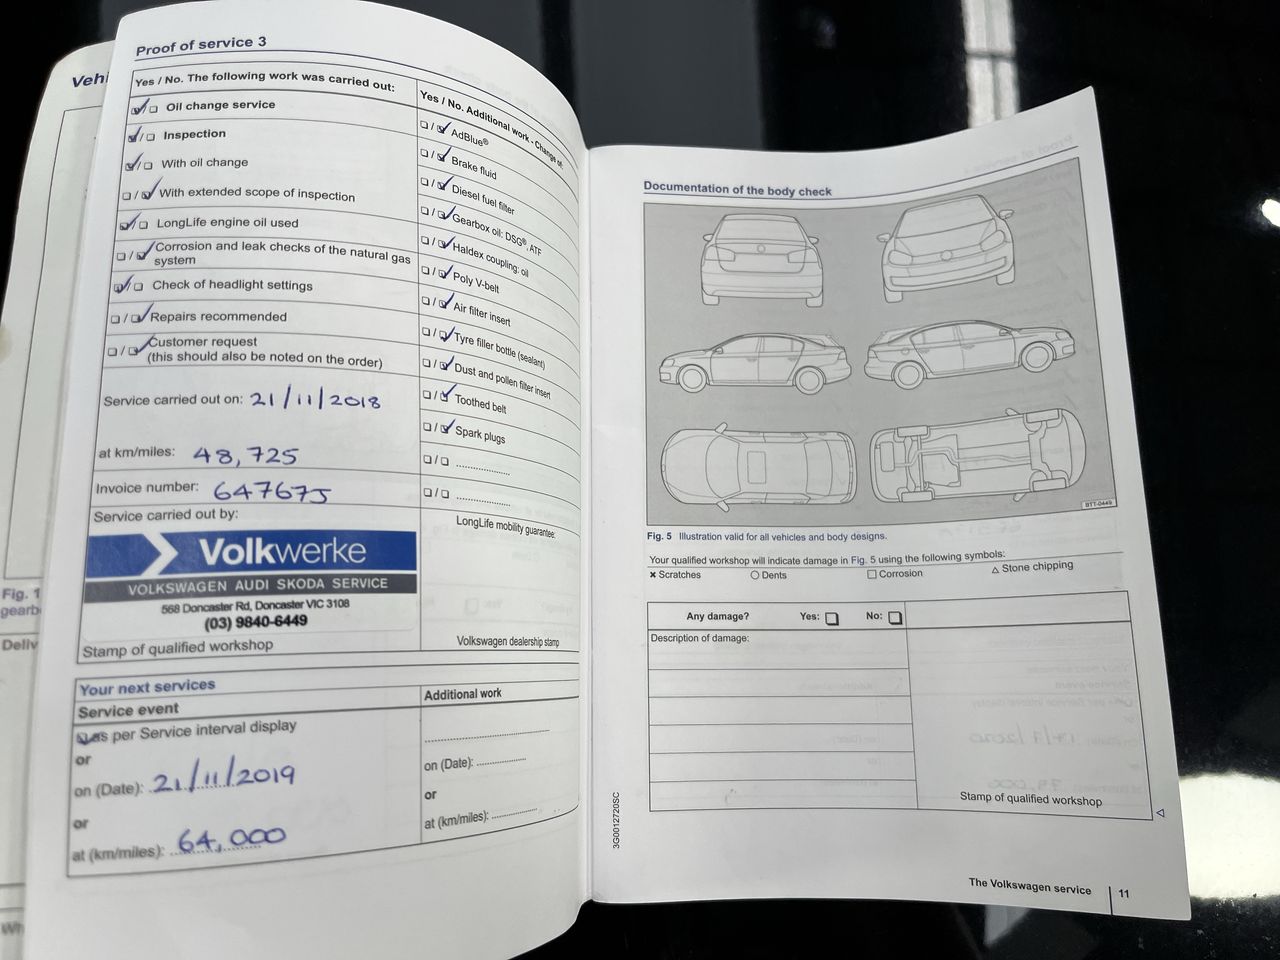 Vehi
Fig. 1
gearb
Deliv
Wh
Proof of service 3
Yes / No. The following work was carried out:
Oil change service
Inspection
With oil change
With extended scope of inspection
LongLife engine oil used
Corrosion and leak checks of the natural gas
system
Check of headlight settings
Repairs recommended
Customer request
(this should also be noted on the order)
Service carried out on: 21/11/2018
at km/miles: 48,725
Invoice number: 647675
Service carried out by:
Volkwerke
VOLKSWAGEN AUDI SKODA SERVICE
568 Doncaster Rd, Doncaster VIC 3108
(03) 9840-6449
Stamp of qualified workshop
Yes / No. Additional work - Change of:
AdBlue®
Brake fluid
Diesel fuel filter
Gearbox oil: DSG®, ATF
Haldex coupling: oil
Poly V-belt
Air filter insert
Tyre filler bottle (sealant)
Dust and pollen filter insert
Toothed belt
Spark plugs
LongLife mobility guarantee:
Volkswagen dealership stamp
Your next services
Service event
as per Service interval display
or
on (Date): 21/11/2019
or
at (km/miles): 64,000
Additional work
on (Date):
or
at (km/miles):
Documentation of the body check
BTT-0449
Fig. 5 Illustration valid for all vehicles and body designs.
Your qualified workshop will indicate damage in Fig. 5 using the following symbols:
× Scratches ○ Dents □ Corrosion △ Stone chipping
Any damage? Yes: No:
Description of damage:
Stamp of qualified workshop
3G0012720SC
The Volkswagen service 11